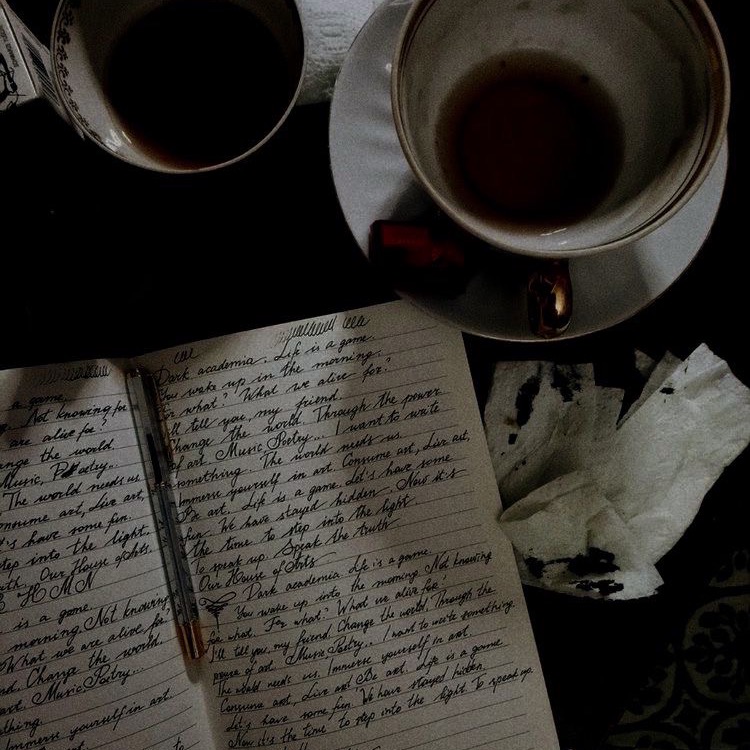 a game.
Not knowing for
are alive for?
the world.
Music, Poetry..
The world needs us
Consume art, Live art,
have some fun.
step into the light.
Our House of Arts.
H M N
is a game.
morning. Not knowing
What we are alive for
Change the world.
art. Music, Poetry...
immerse yourself in art.
to
Dark academia. Life is a game.
You wake up in the morning.
For what? What we alive for?
I'll tell you, my friend.
Change the world. Through the power
of art. Music, Poetry... I want to write
something. The world needs us.
Immerse yourself in art. Consume art, Live art,
Be art. Life is a game. Let's have some
fun. We have stayed hidden. Now it's
the time to step into the light
To speak up. Speak the truth
Our House of Arts
Dark academia Life is a game
You wake up into the morning Not knowing
for what. For what? What we alive for?
I'll tell you, my friend. Change the world. Through the
power of art. Music, Poetry... I want to write something.
The world needs us. Immerse yourself in art
Consume art, Live and Be art. Life is a game
Let's have some fun. We have stayed hidden.
Now it's the time to step into the light. To speak up.